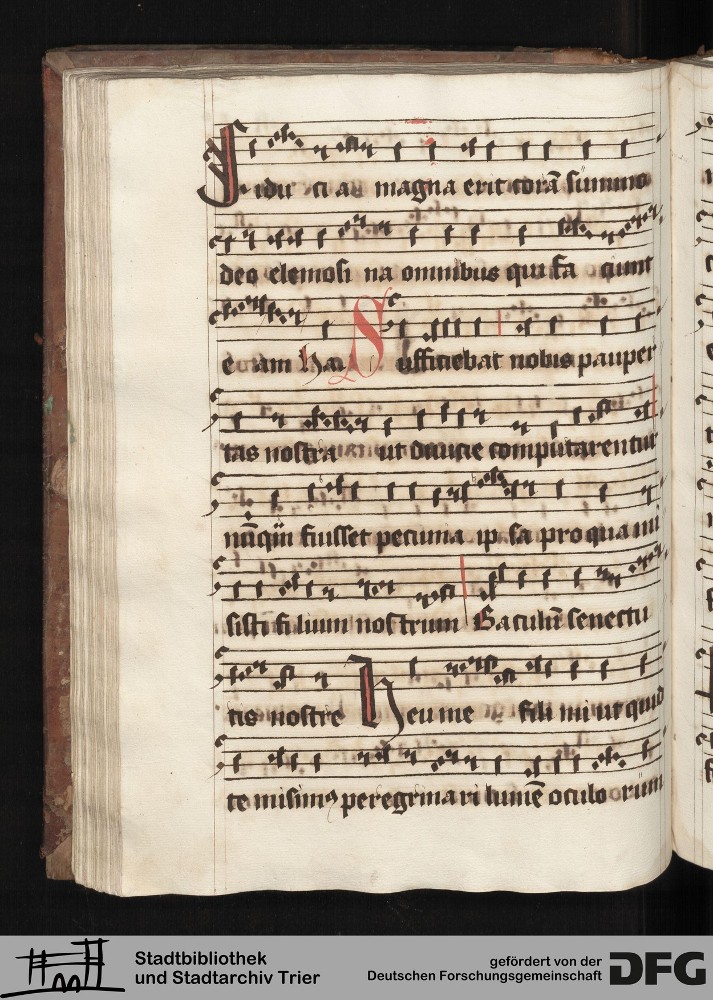 Fidu ci a magna erit corã summo
deo elemosi na omnibus qui fa ciunt
e am
Sufficiebat nobis pauper
tas nostra ut diuicie computarentur
nũq̃ fuisset pecunia ip sa pro qua mi
sisti filium nostrum Baculũ senectu
tis nostre Heu me fili mi ut quid
te misimꝰ peregrina ri lumẽ oculo orum
Stadtbibliothek
und Stadtarchiv Trier
gefördert von der
Deutschen Forschungsgemeinschaft
DFG